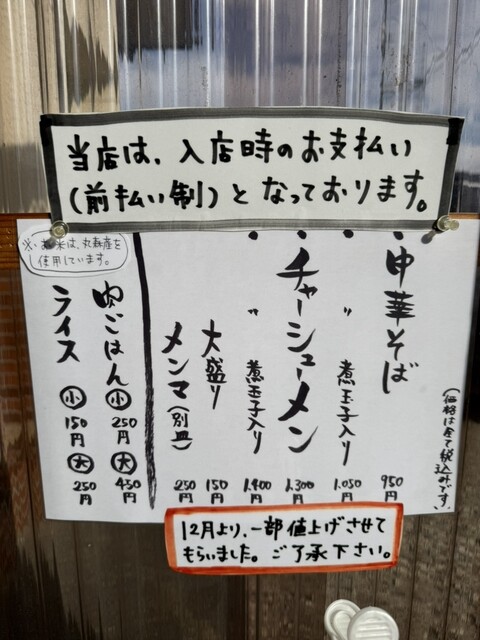 当店は、入店時のお支払い
(前払い制)となっております。
・中華そば 950円
・〃 煮玉子入り 1,050円
・チャーシューメン 1,300円
・〃 煮玉子入り 1,400円
大盛り 150円
メンマ(別皿) 250円
(価格は全て税込みです。)
※お米は、丸森産を
使用しています。
肉ごはん 小 250円 大 450円
ライス 小 150円 大 250円
12月より、一部値上げさせて
もらいました。ご了承下さい。